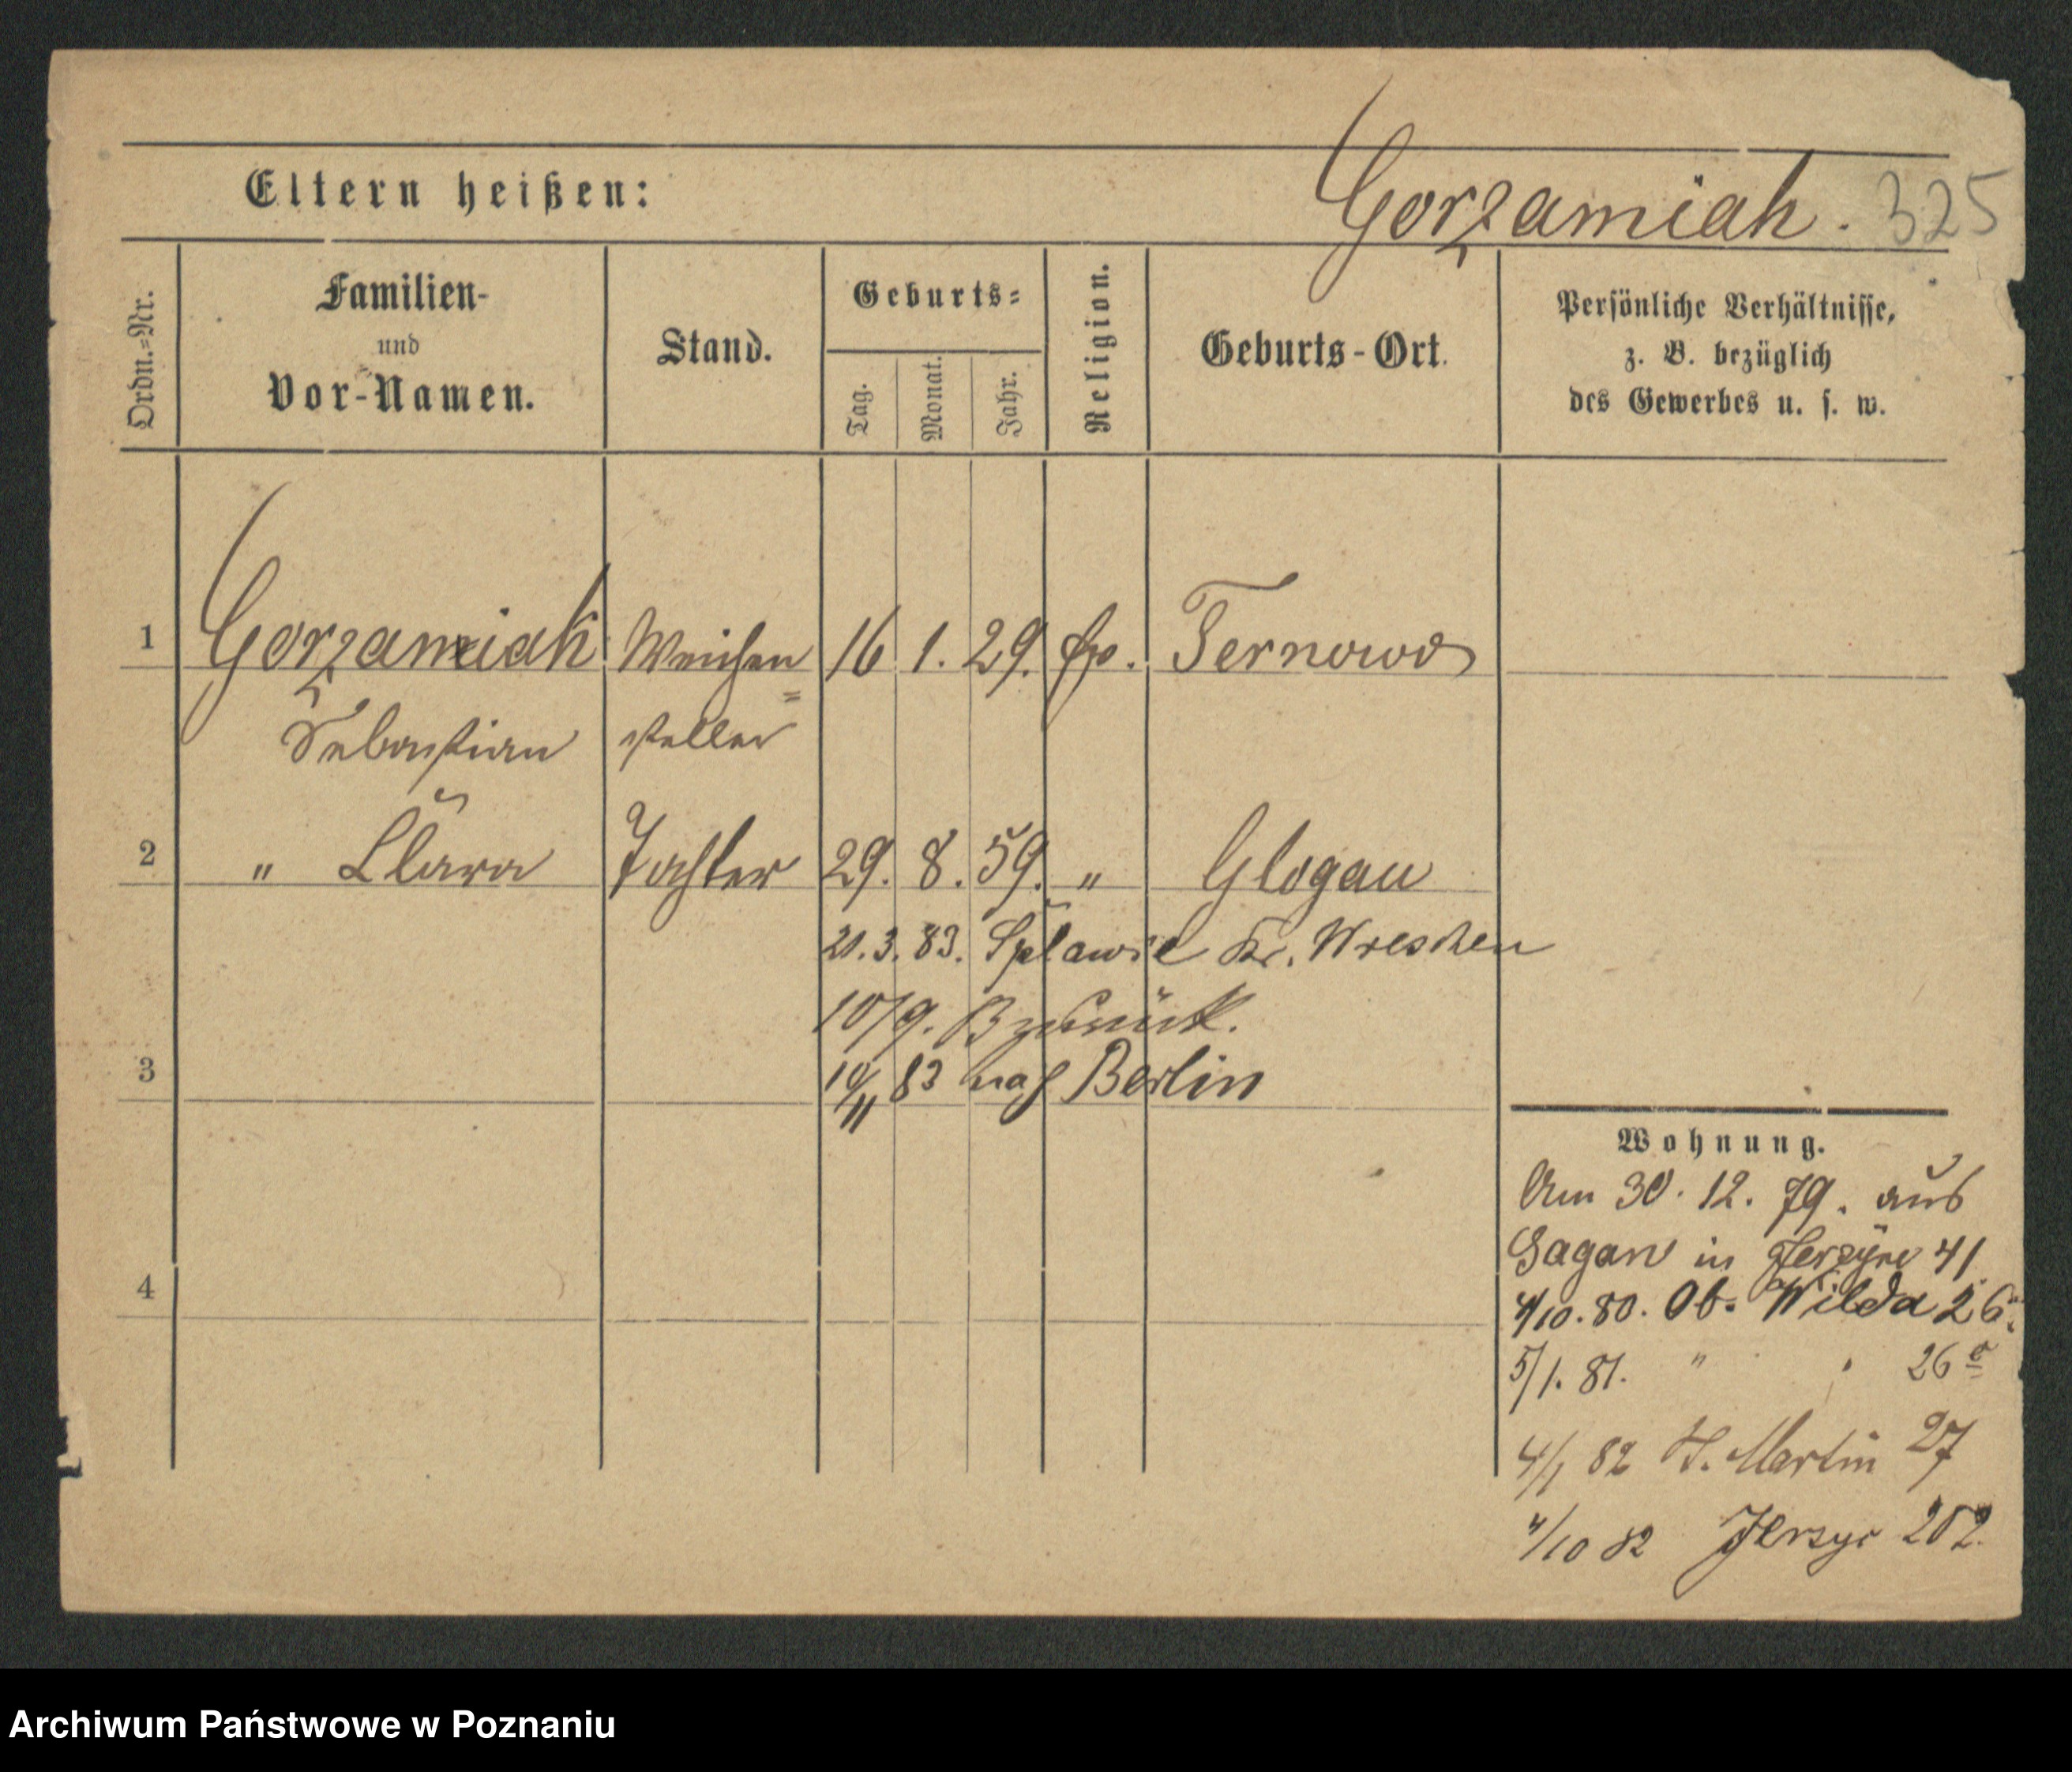 Eltern heißen:
Gorzamiak. 325
Ordn.=Nr.
Familien-
und
Vor-Namen.
Stand.
Geburts=
Tag.
Monat.
Jahr.
Religion.
Geburts-Ort.
Persönliche Verhältnisse,
z. B. bezüglich
des Gewerbes u. s. w.
1 Gorzamiak Weichen 16 1. 29. Ternowo
=
Sebastian steller
2 " Clara Tochter 29. 8. 59. " Glogau
21. 3. 83. Splawie Kr. Wreschen
10/9. zurück.
3
10/11 83 nach Berlin
Wohnung.
Am 30. 12. 79. aus
Sagan in Jerzyce 41
4/10. 80. Ob. Wilda 26.
5/1. 81. " " 26
4
4/1 82 St. Martin 27
4/10 82 Jersyc 202.
Archiwum Państwowe w Poznaniu